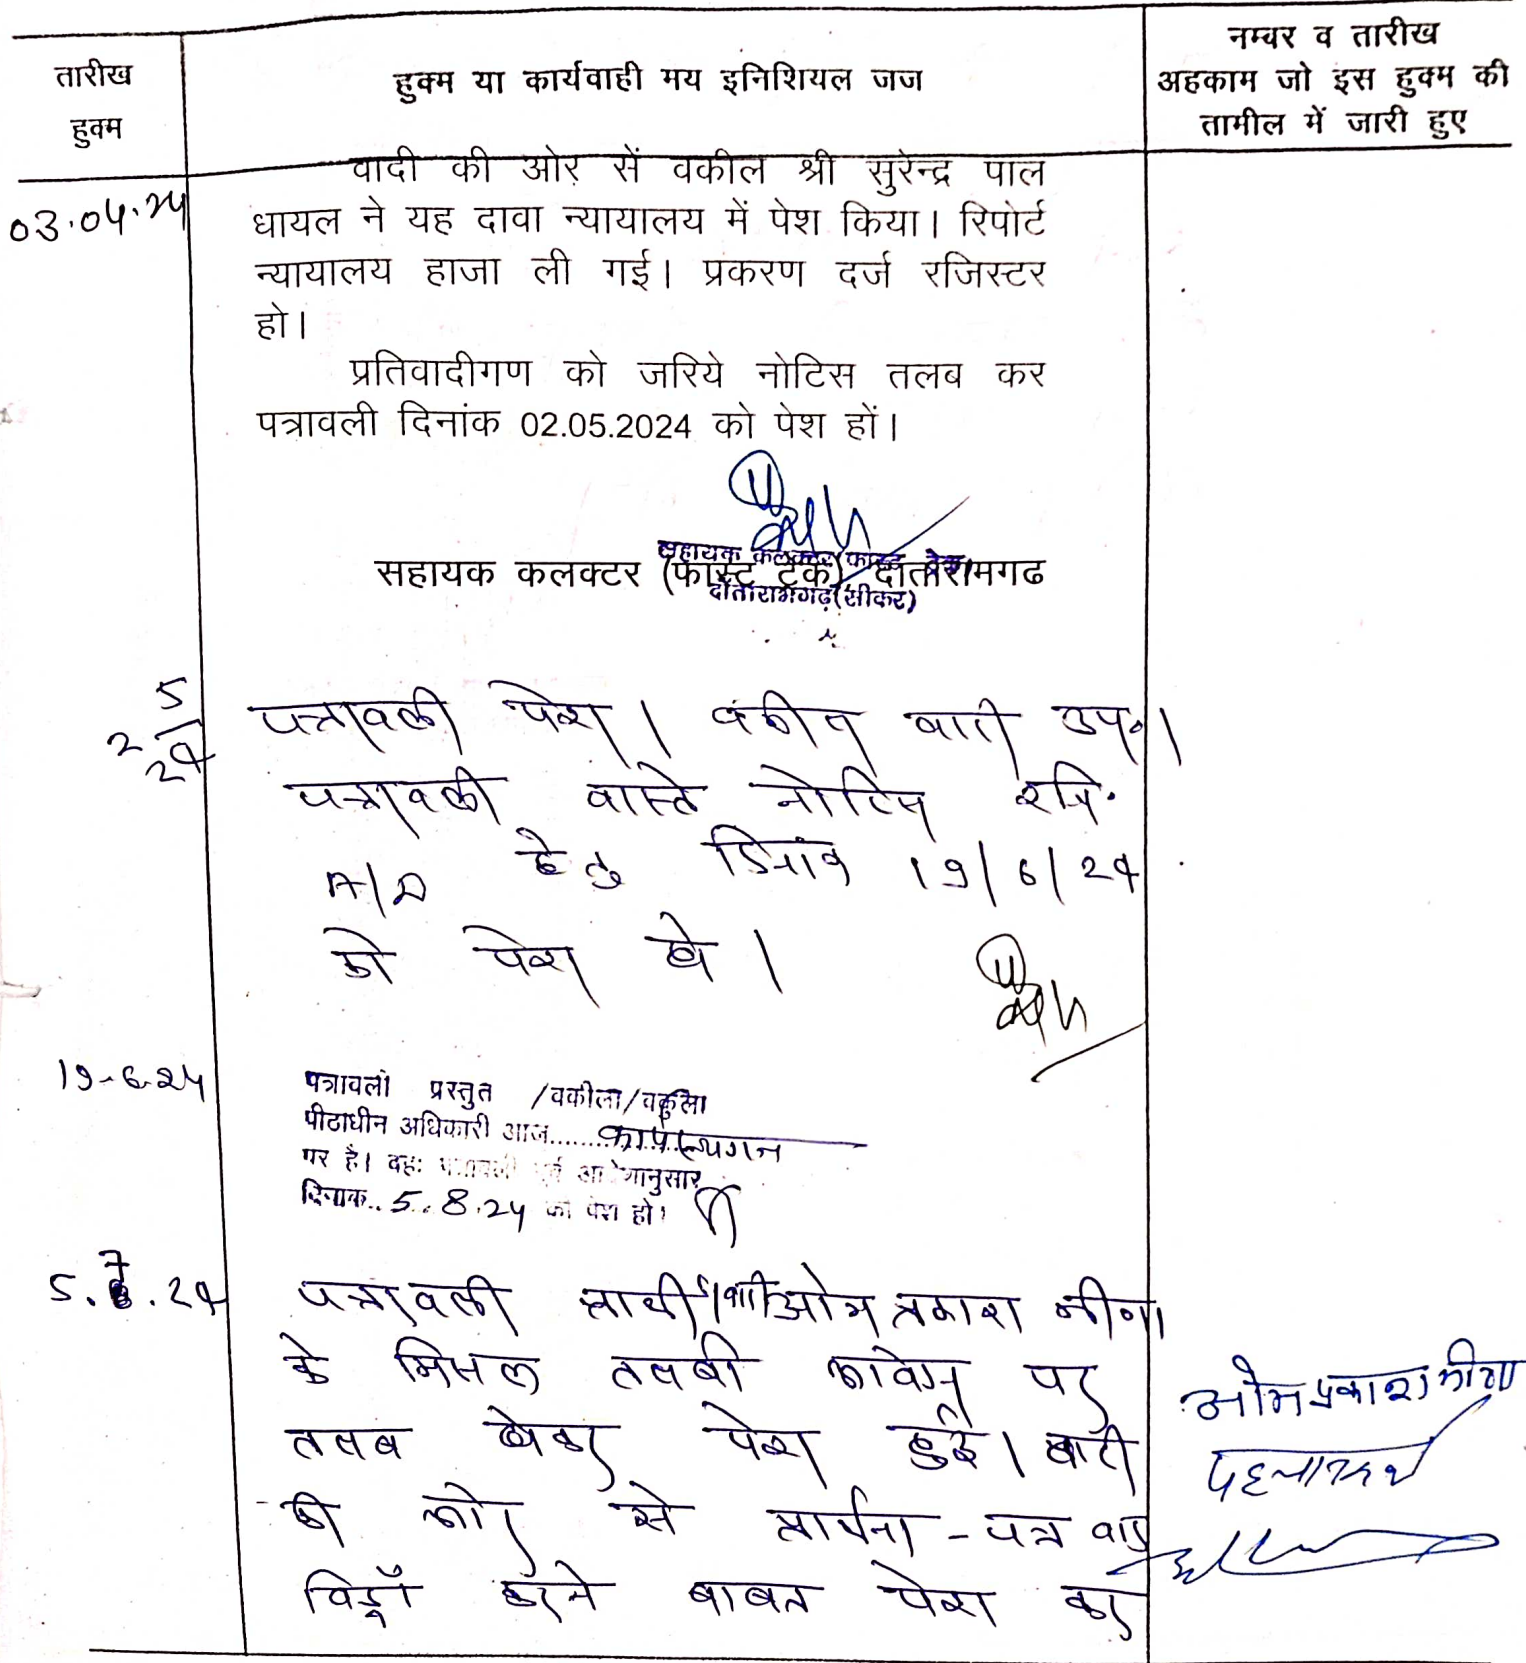 तारीख
हुक्म
हुक्म या कार्यवाही मय इनिशियल जज
नम्बर व तारीख
अहकाम जो इस हुक्म की
तामील में जारी हुए
03.04.24
वादी की ओर सें वकील श्री सुरेन्द्र पाल
धायल ने यह दावा न्यायालय में पेश किया। रिपोर्ट
न्यायालय हाजा ली गई। प्रकरण दर्ज रजिस्टर
हो।
प्रतिवादीगण को जरिये नोटिस तलब कर
पत्रावली दिनांक 02.05.2024 को पेश हों।
सहायक कलक्टर फास्ट ट्रेक
सहायक कलक्टर (फास्ट टेक) दांतारामगढ
दांतारामगढ़ (सीकर)
2/5/24
पत्रावली पेश। वकील वादी उप०।
पत्रावली वास्ते नोटिस रजि.
A/D हेतु दिनांक 19/6/24
को पेश हो।
19-6-24
पत्रावली प्रस्तुत /वकील/वकुला
पीठाधीन अधिकारी आज........
पर है। अतः पत्रावली पूर्व आदेशानुसार
दिनांक..5..8.24 को पेश हो।
5.7.24
पत्रावली प्रार्थी ओम प्रकाश मीणा
के मिसल तलबी आवेदन पर
तलब होकर पेश हुई। वादी
की ओर से प्रार्थना-पत्र वाद
विड्रॉ करने बाबत पेश कर
ओमप्रकाश मीणा